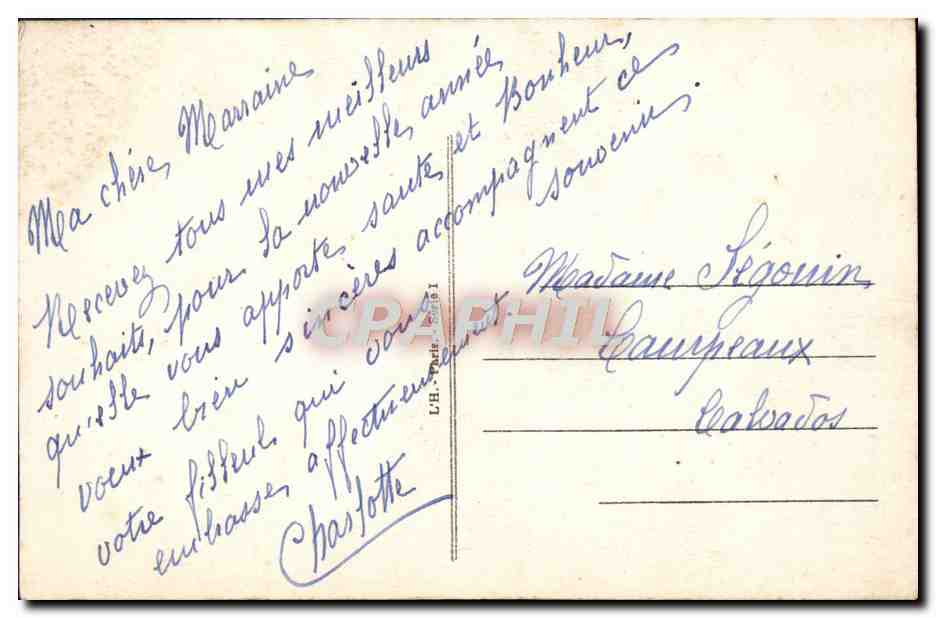 Ma chère Marraine
Recevez tous mes meilleurs
souhaits, pour la nouvelle année,
qu'elle vous apporte santé et Bonheur,
voeux bien sincères accompagnent ce
souvenir.
votre filleul qui vous
embrasse affectueusement.
Charlotte
L'H. - Paris. - Série I
Madame Ségouin
Campeaux
Calvados
CPAPHIL